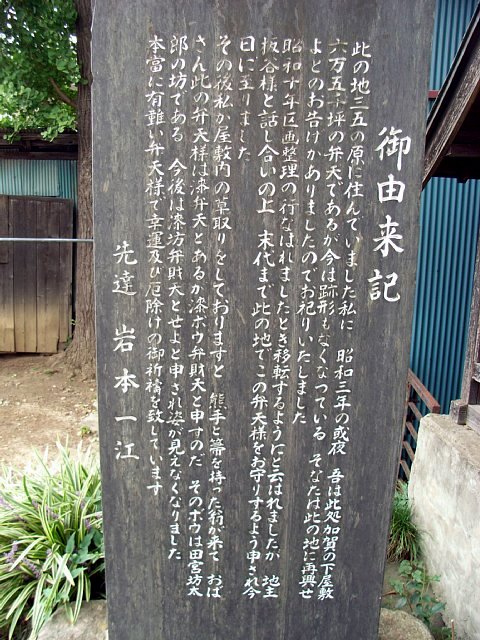 御由来記
此の地三五の原に住んでいました私に 昭和三年の或夜 吾は此処加賀の下屋敷
六万五千坪の弁天であるが今は跡形もなくなつている そなたは此の地に再興せ
よとのお告げがありましたのでお祀りいたしました
昭和十年区画整理の行なはれましたとき移転するようにと云はれましたが 地主
板谷様と話し合いの上 末代まで此の地でこの弁天様をお守りするよう申され今
日に至りました
その後私が屋敷内の草取りをしておりますと 熊手と箒を持った翁が来て おば
さん此の弁天様は漆弁天とあるが漆ボウ弁財天と申すのだ そのボウは田宮坊太
郎の坊である 今後は漆坊弁財天とせよと申され姿が見えなくなりました
本當に有難い弁天様で幸運及び厄除けの御祈禱を致しています
先達 岩本一江